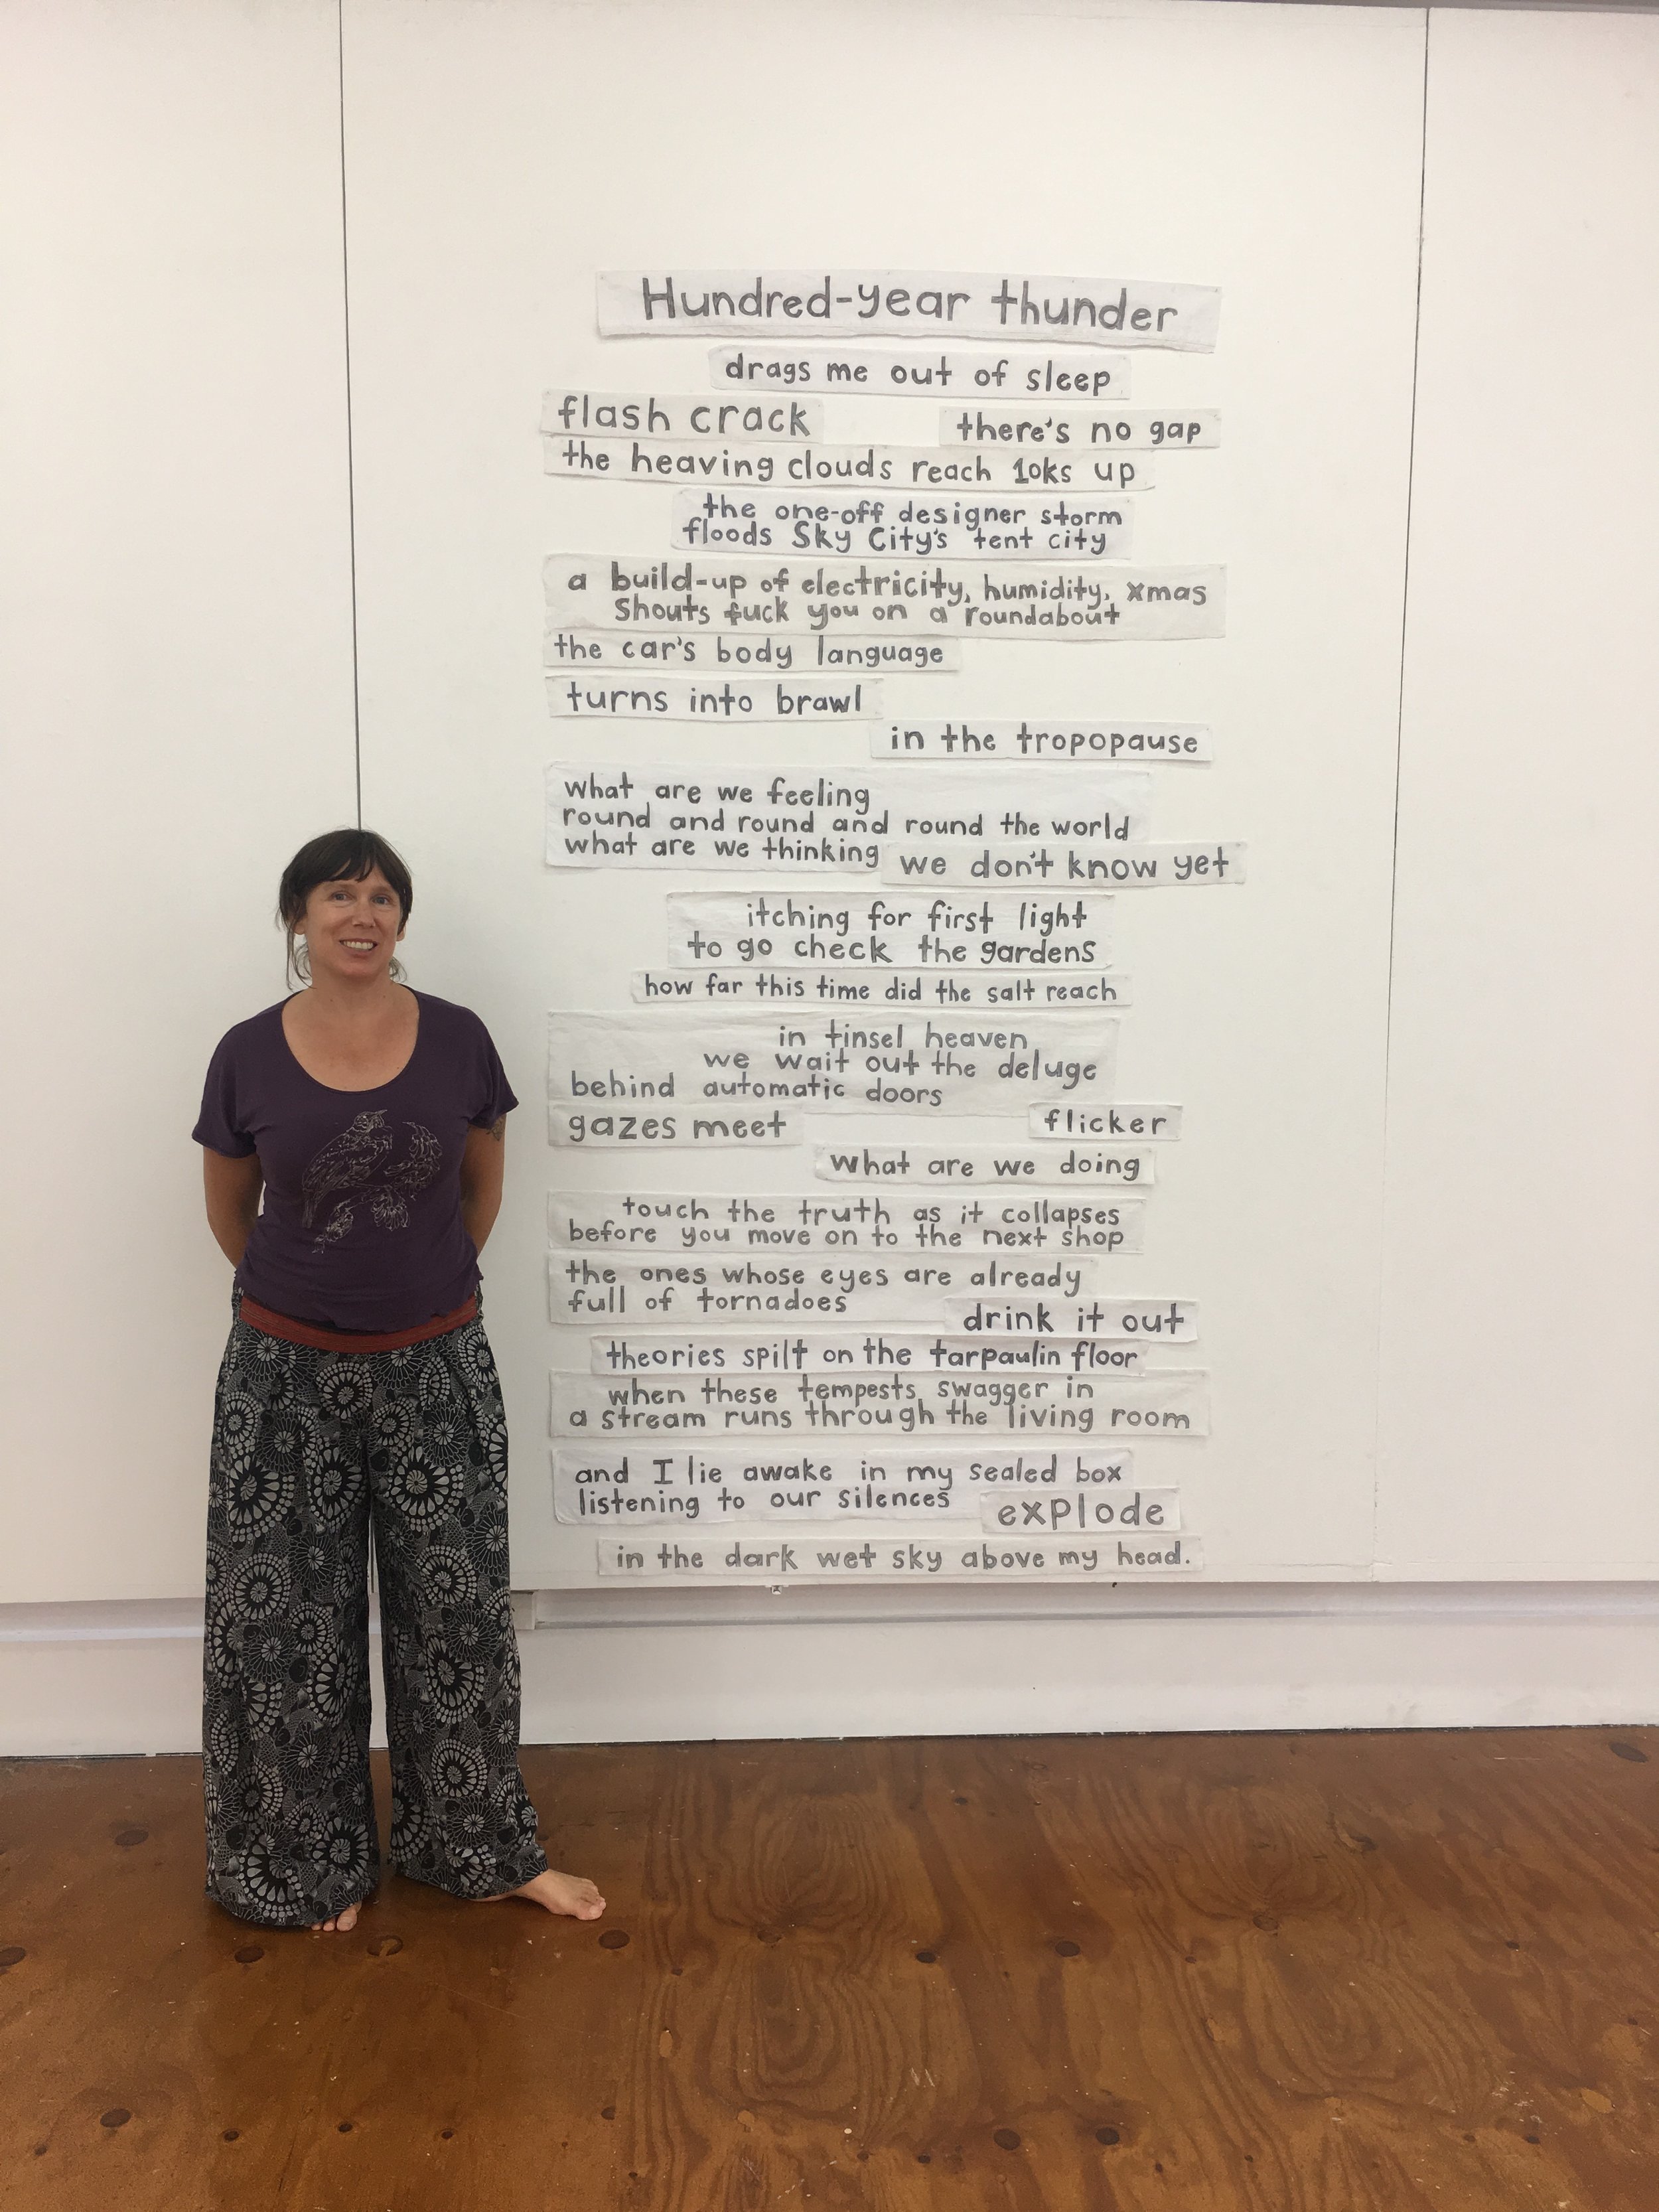 Hundred-year thunder
drags me out of sleep
flash crack there's no gap
the heaving clouds reach 10ks up
the one-off designer storm
floods Sky City's tent city
a build-up of electricity, humidity, xmas
Shouts fuck you on a roundabout
the car's body language
turns into brawl
in the tropopause
what are we feeling
round and round and round the world
what are we thinking we don't know yet
itching for first light
to go check the gardens
how far this time did the salt reach
in tinsel heaven
we wait out the deluge
behind automatic doors
gazes meet flicker
what are we doing
touch the truth as it collapses
before you move on to the next shop
the ones whose eyes are already
full of tornadoes drink it out
theories spilt on the tarpaulin floor
when these tempests swagger in
a stream runs through the living room
and I lie awake in my sealed box
listening to our silences explode
in the dark wet sky above my head.